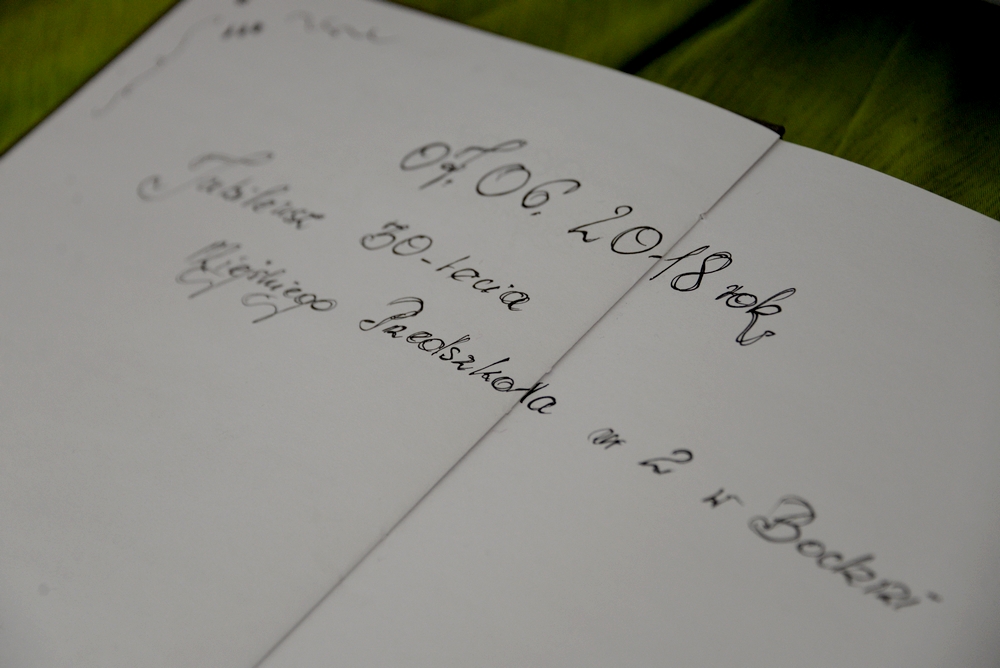 07.06.2018 rok
Jubileusz 30-lecia
Miejskiego Przedszkola nr 2 w Bochni